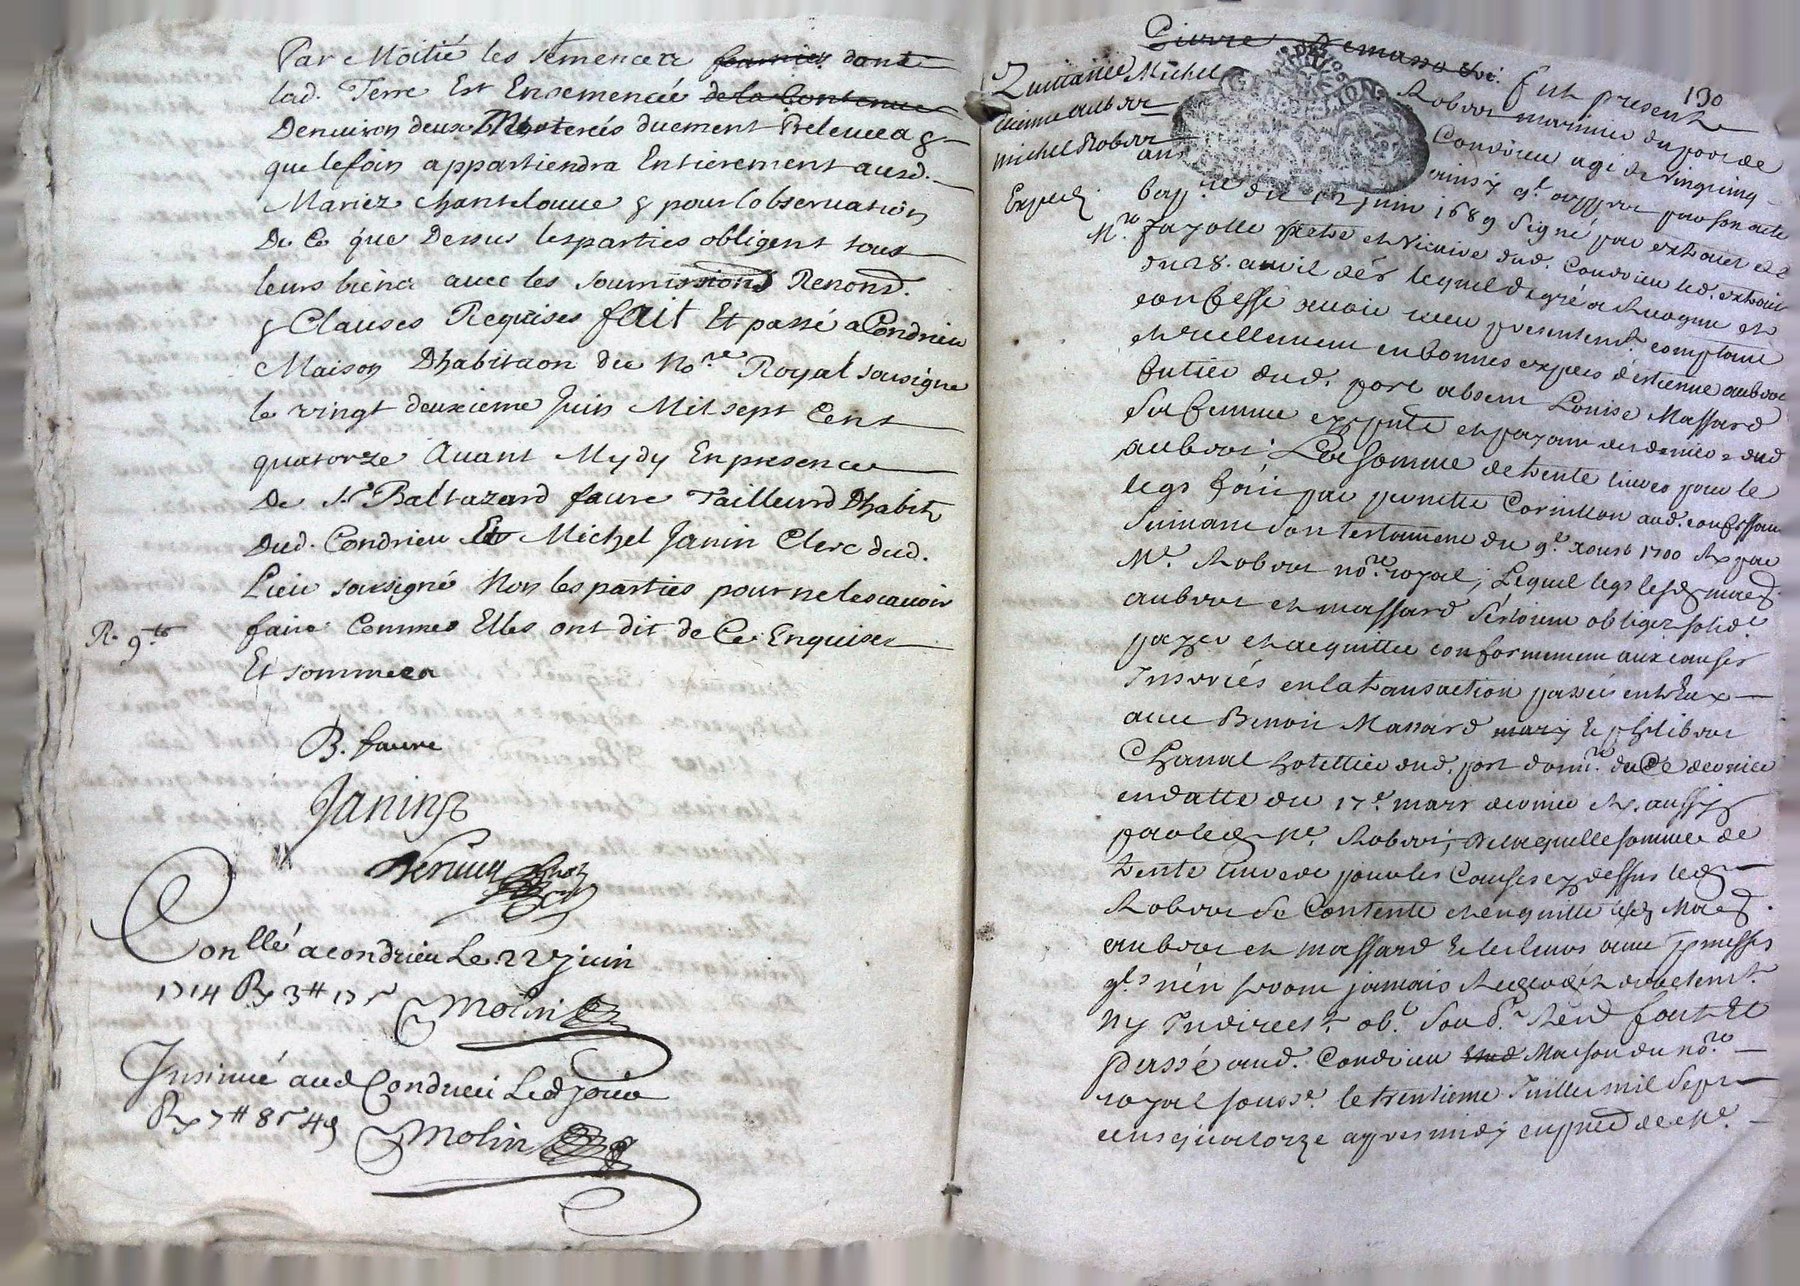 Par Moitié les semences fournies dont
lad. Terre Est Ensemencée de la Contenue
Denuiron deux duement Preleuea &
que lefoin appartiendra Entierement ausd.
Mariez Chantelouue & pour lobseruation
De Ce que Dessus lesparties obligent tous
leurs biens auec les soumissions Renond.
& Clauses Requises fait Et passé a Condrieu
Maison Dhabitaon du No.re Royal sousigne
le vingt deuxieme Juin Mil sept Cent
quatorze Auant Mydy En presence
De Sr Baltazard faure Tailleurd Dhabits
Dud. Condrieu Et Michel Janin Clerc dud.
Lieu sousigné Non les parties pour ne lescauoir
faire Comme Elles ont dit de Ce Enquises
R. 9.ts
Et sommees
B. faure
Janin
Conllé a condrieu Le 22 juin
1714 R 3# 17 s
Molin
Insinué aud Condrieu Led jour
R 7# 8 s 4 d
Molin
130
Pierre
fut present
Quittance Michel
etienne aubor
michel Robor
Exped.
Robor marinier du port de
Condrieu age de vingtcinq
ainsy ql appert par son acte
bap.re du 12 juin 1689 Signé par extrait de
Mre fayolle pretre et vicaire dud. Condrieu led. extrait
du 28. auril der lequel de gré a
confesse auoir receu presentemt. comptant
et reellement en bonnes especes destienne aubor
futier dud. port absent Louise Massard
sa femme et payant des deniers dud
aubor La somme de trente liures pour le
legs fait par Cornillon aud. confessant
suiuant son testament du 9e 1700 par
Me. Robor nore. royal; Lequel legs lesd. mared.
aubor et massard sestoient obligez solide.
payer et acquitter conformement aux causes
Inserées en la transaction passée entreux
auec Benoit Massard mary & philibor
Chanal hotellier dud. port
en datte du 17e mars dernier R. aussy
par led. Me. Robor; De laquelle somme de
trente liures pour les Causes cy dessus led.
Robor se Contente et en quitte lesd. Mared.
aubor et massard & les leurs auec promesse
ql. nen seront jamais directemt.
ny Indirect. obt. fait Et
passé aud. Condrieu Maison du nore.
royal souse. le trentieme Juillet mil Sept
cens quatorze apres midy en pnce de Me.